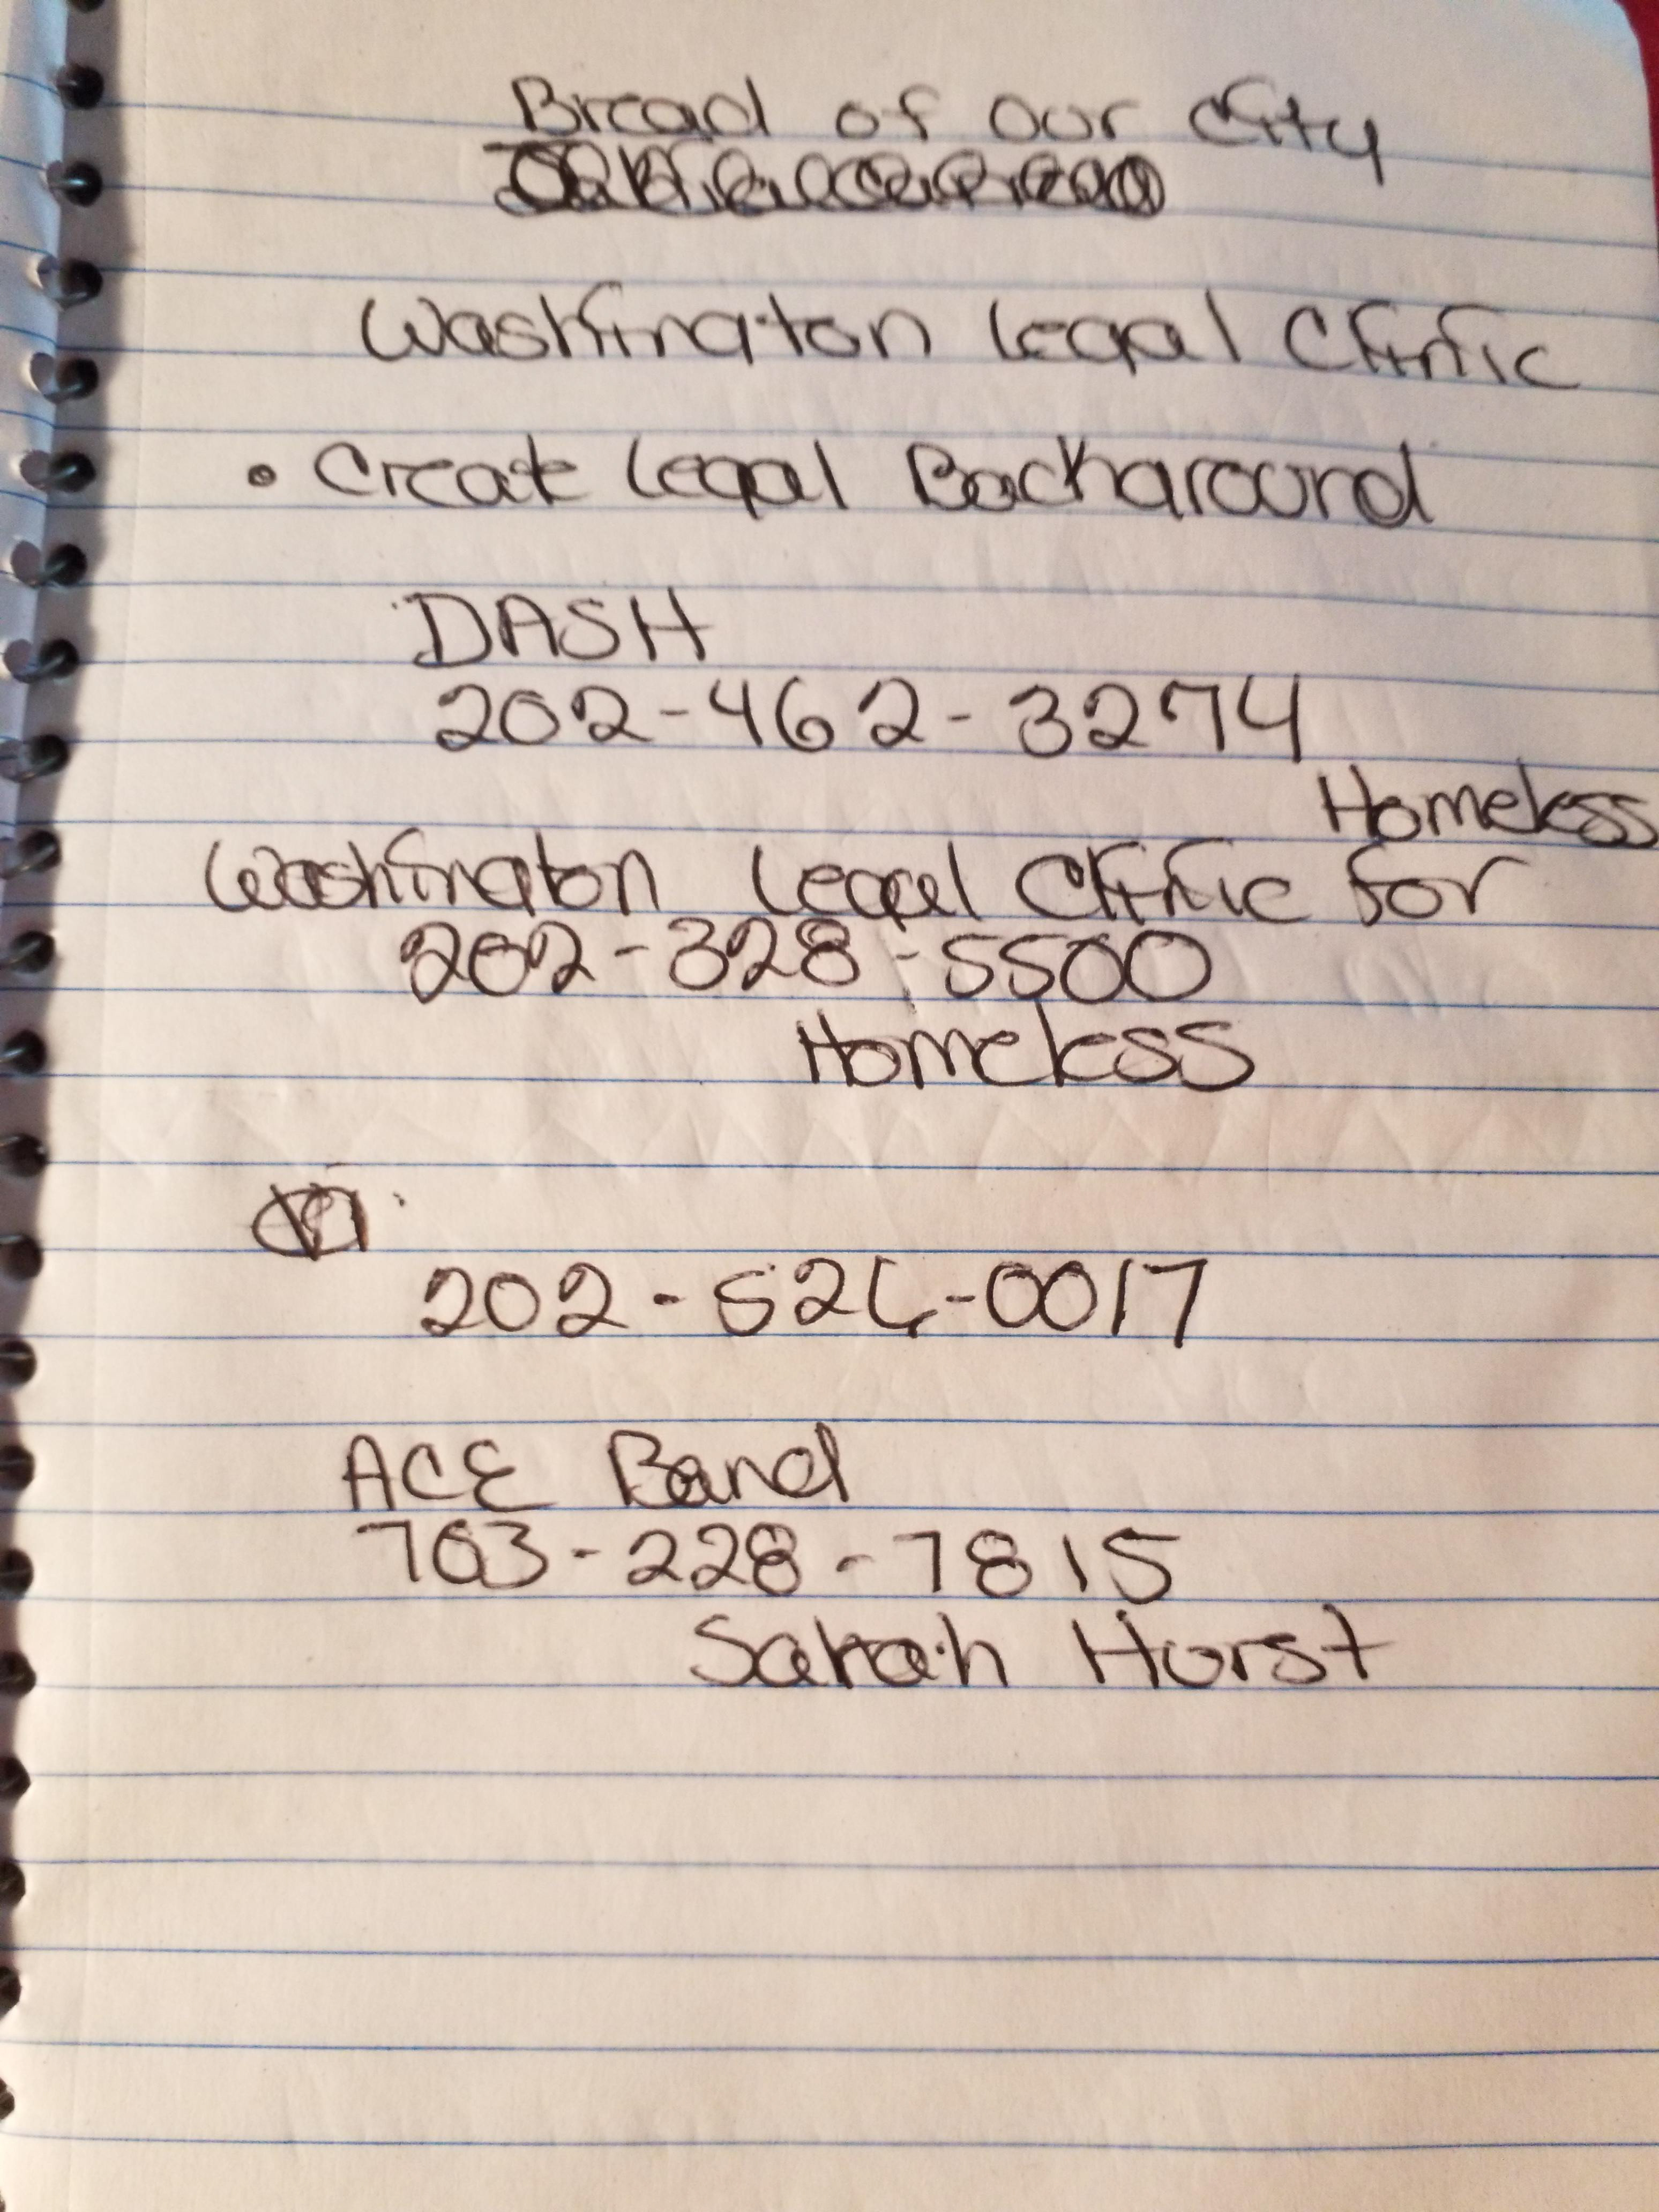 Bread of our City
Washington Legal Clinic
• Create Legal Background
DASH
202-462-3274
Homeless
Washington Legal Clinic for
202-328-5500
Homeless
202-526-0017
ACE Band
703-228-7815
Sarah Horst